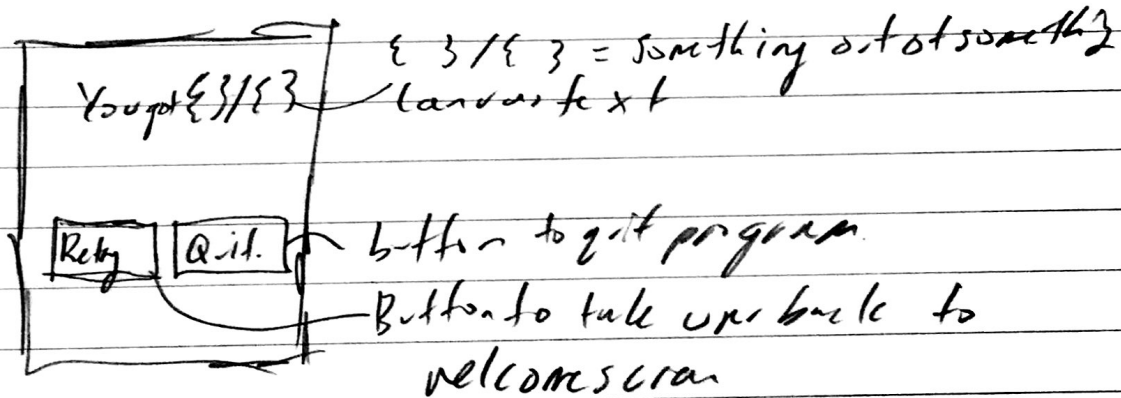 { }/{ } = something out of something
You got { }/{ }
canvas text
Retry
Quit.
button to quit program.
Button to take user back to
welcome scran